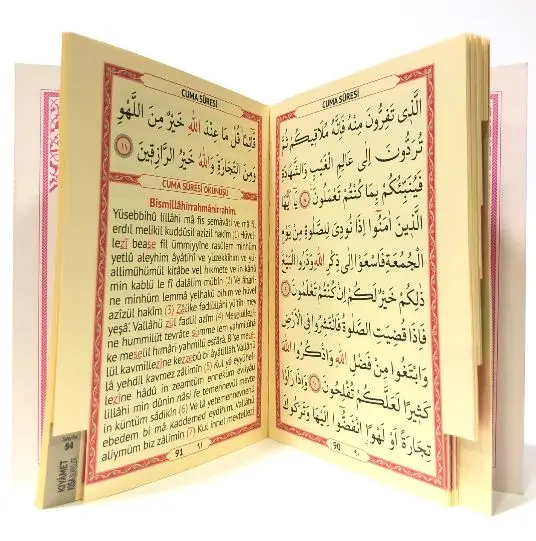 CUMA SÛRESİ
الَّذِي تَفِرُّونَ مِنْهُ فَاِنَّهُ مُلَاقِيكُمْ ثُمَّ
تُرَدُّونَ اِلٰى عَالِمِ الْغَيْبِ وَالشَّهَادَةِ
فَيُنَبِّئُكُمْ بِمَا كُنْتُمْ تَعْمَلُونَ ٨ يَا اَيُّهَا
الَّذِينَ اٰمَنُوا اِذَا نُودِيَ لِلصَّلٰوةِ مِنْ يَوْمِ
الْجُمُعَةِ فَاسْعَوْا اِلٰى ذِكْرِ اللهِ وَذَرُوا الْبَيْعَ
ذٰلِكُمْ خَيْرٌ لَكُمْ اِنْ كُنْتُمْ تَعْلَمُونَ ٩
فَاِذَا قُضِيَتِ الصَّلٰوةُ فَانْتَشِرُوا فِي الْاَرْضِ
وَابْتَغُوا مِنْ فَضْلِ اللهِ وَاذْكُرُوا اللهَ
كَثِيرًا لَعَلَّكُمْ تُفْلِحُونَ ١٠ وَاِذَا رَاَوْا
تِجَارَةً اَوْ لَهْوًا انْفَضُّوا اِلَيْهَا وَتَرَكُوكَ
90 ٩٠
CUMA SÛRESİ
قَائِمًا قُلْ مَا عِنْدَ اللهِ خَيْرٌ مِنَ اللَّهْوِ
وَمِنَ التِّجَارَةِ وَاللهُ خَيْرُ الرَّازِقِينَ ١١
CUMA SÛRESİ OKUNUŞU
Bismillâhirrahmânirrahîm.
Yüsebbihû lillâhi mâ fis semâvâti ve mâ fil
erdıl melikil kuddûsil azîzil hakîm (1) Hüvel-
lezî bease fil ümmiyyîne rasûlem minhüm
yetlû aleyhim âyâtihî ve yüzekkîhim ve yü-
allimühümül kitâbe vel hikmete ve in kânû
min kablü le fî dalâlim mübîn (2) Ve âharî-
ne minhüm lemmâ yelhakû bihim ve hüvel
azîzül hakîm (3) Zâlike fadlüllâhi yü'tîhi mey
yeşâ'. Vallâhü zül fadlil azîm (4) Meselüllezî-
ne hummilüt tevrâte sümme lem yahmilûhâ
ke meselil hımâri yahmilü esfârâ. Bi'se mese-
lül kavmillezîne kezzebû bi âyâtillâh. Vallâhü
lâ yehdil kavmez zâlimîn (5) Kul yâ eyyühel-
lezîne hâdû in zeamtüm enneküm evliyâü
lillâhi min dûnin nâsi fe temennevül mevte
in küntüm sâdikîn (6) Ve lâ yetemennevnehû
ebedem bi mâ kaddemed eydîhim. Vallâhü
alîymüm biz zâlimîn (7) Kul innel mevtellezî
91 ٩١
Sayfa
94
KIYÂMET